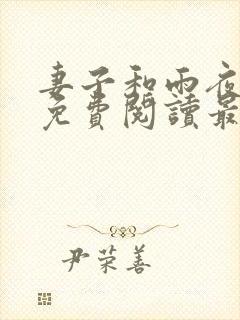 妻子和雨夜
免費閱讀最
尹荣善